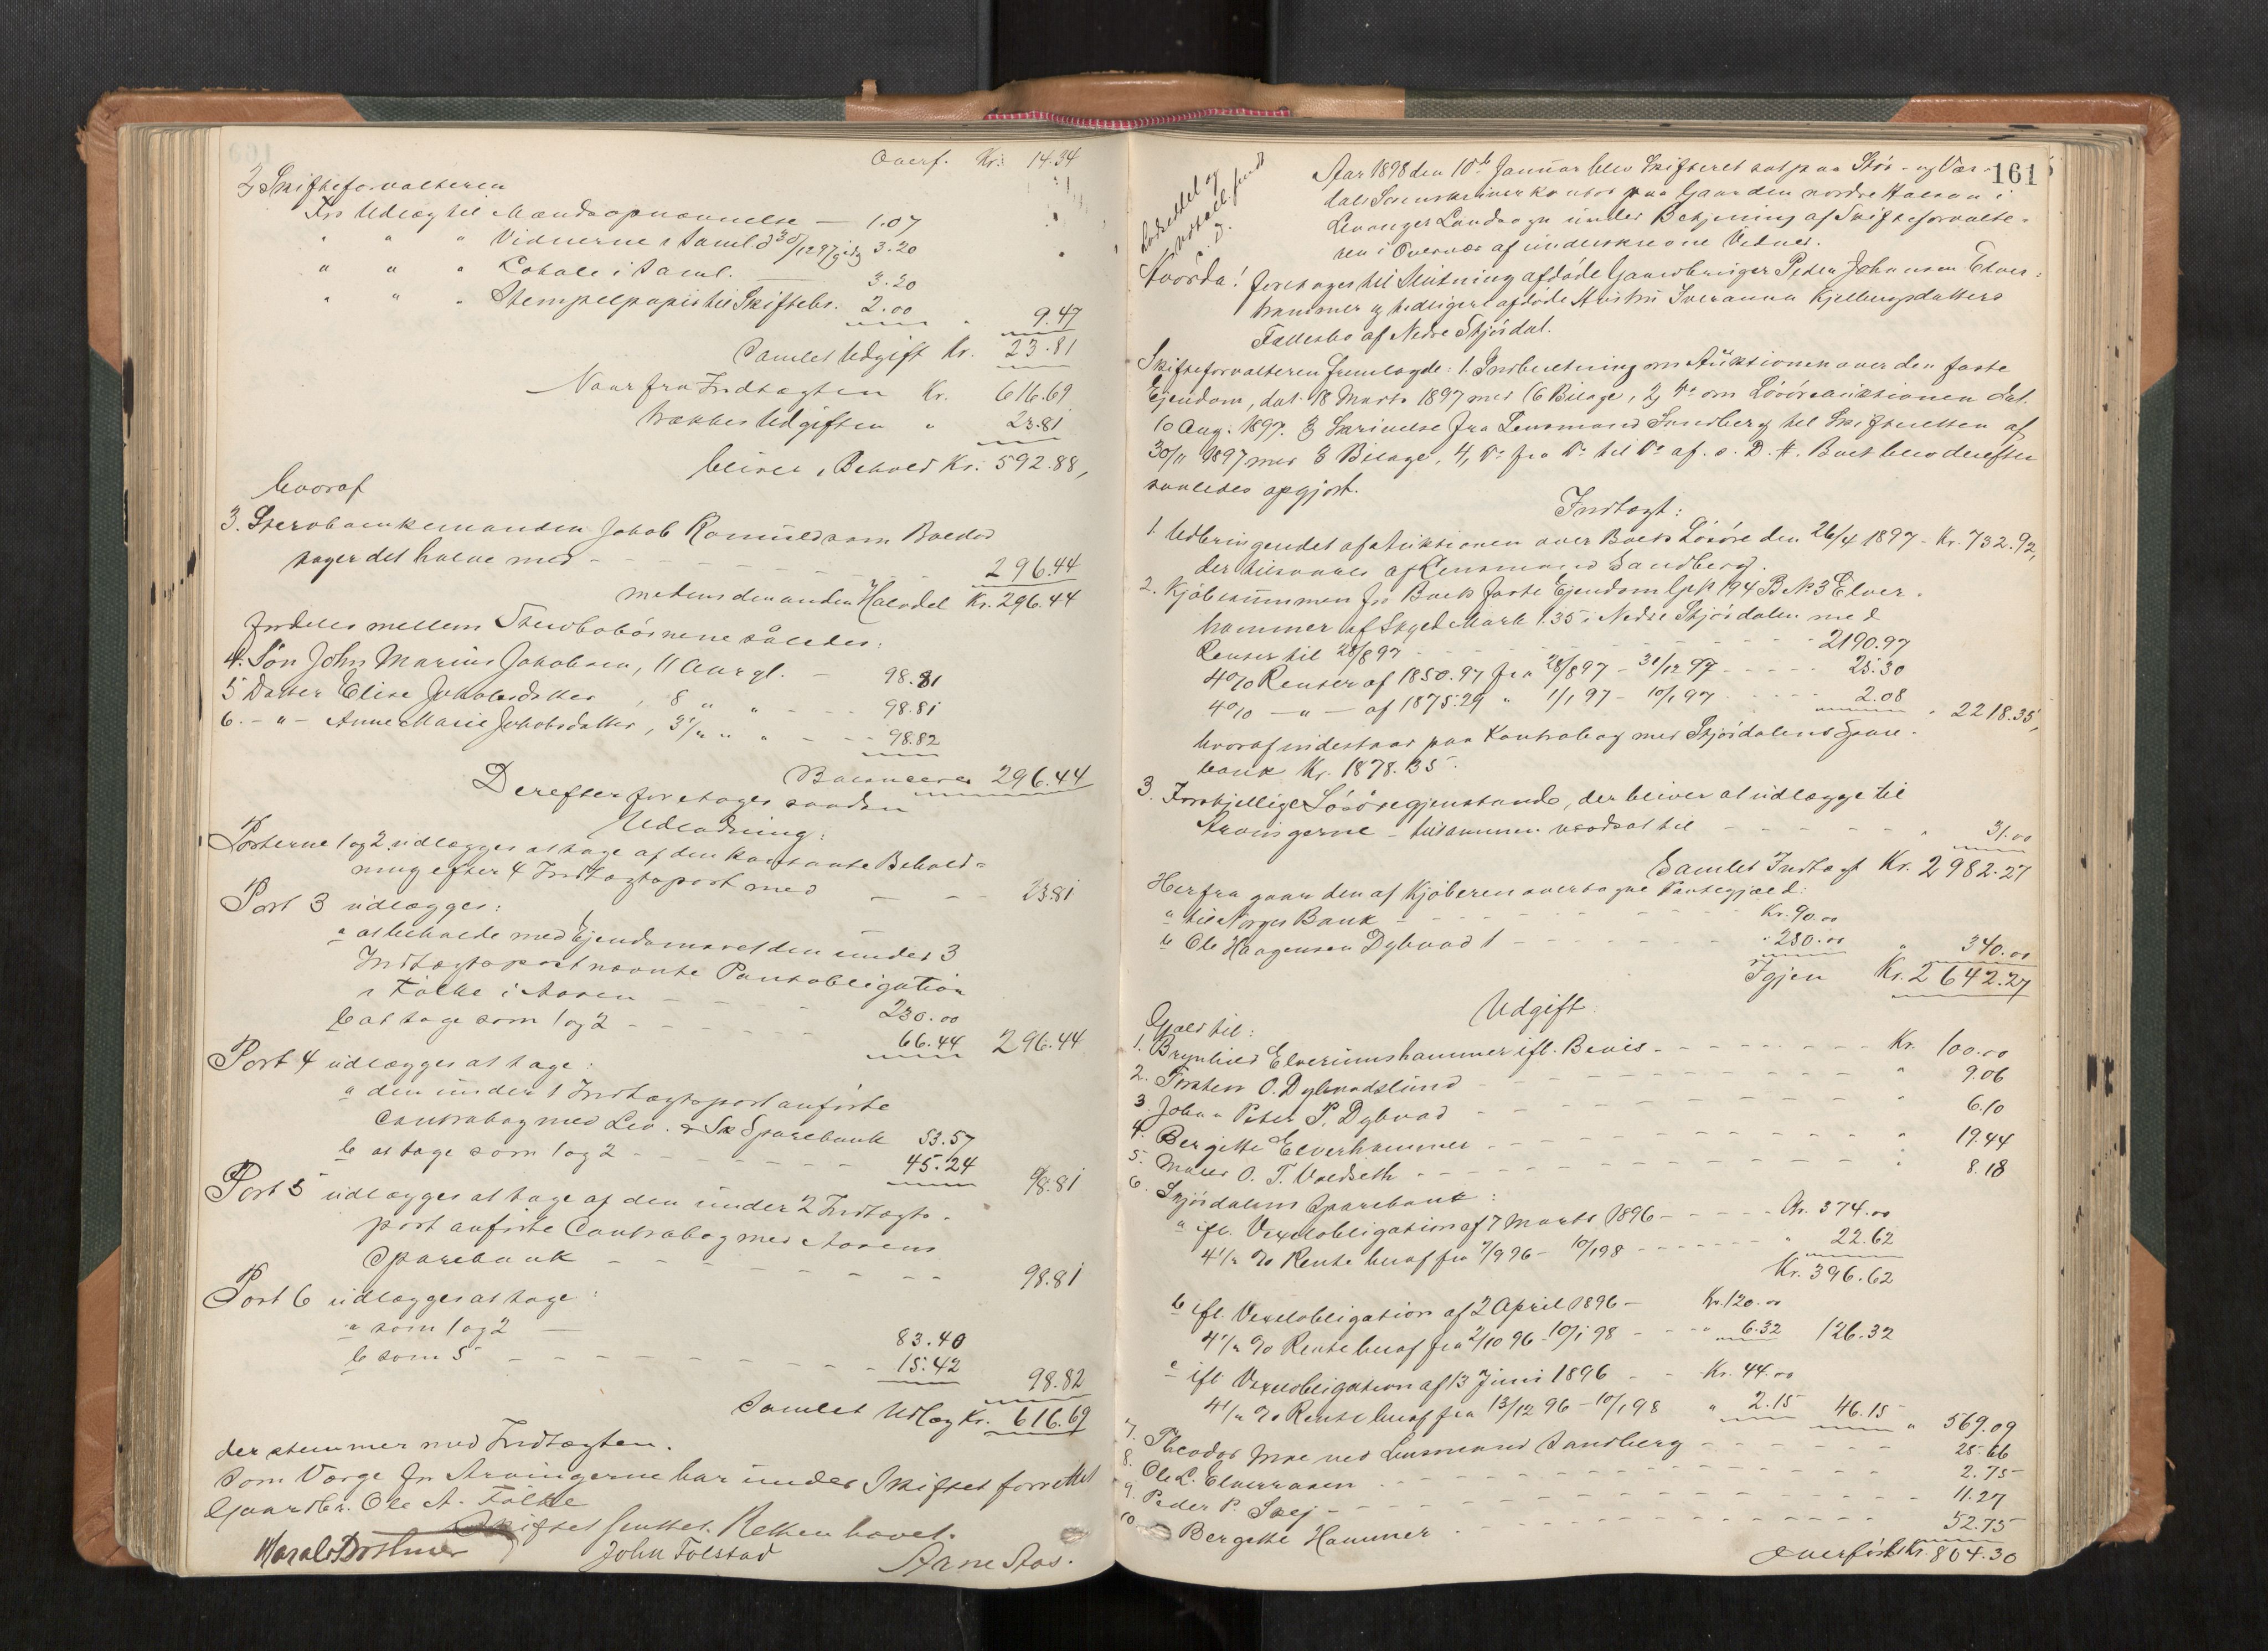 Overf. Kr. 14.34
2, Skifteforvalteren
For Udlæg til Mandsopnævnelse — 1.07
" " " Vidnerne i Saml. d 30/12 97 3.20
" " " Lokale i Saml. — 3.20
" " " Stempelpapir til Skiftebr. 2.00 " 9.47
Samlet Udgift Kr. 23.81
Naar fra Indtægten Kr. 616.69
trækkes Udgiften " 23.81
bliver i Behold Kr. 592.88,
hvoraf
3. Stervboenkemanden Jakob Romuldsen Buedal
tager det halve med - - - 296.44
medens den anden Halvdel Kr. 296.44
fordeles mellem Stervbobörnene således:
4. Sön John Marius Jakobsen, 11 Aar gl. - 98.81
5 Datter Elise Jakobsdatter, 8 " " - - - 98.81
6. - " - Anne Marie Jakobsdatter, 3 1/2 " " - - - 98.82
Balancerer 296.44
Derefter foretages saadan
Udlodning:
Posterne 1 og 2 udlægges at tage af den kontante Behold=
ning efter 4 Indtægtspost med - - - 23.81
Post 3 udlægges:
a at beholde med Ejendomsret den under 3
Indtægtspost nævnte Pantobligation
i Følke i Aasen - - - 230.00
b at tage som 1 og 2 - - - 66.44 296.44
Post 4 udlægges at tage:
a den under 1 Indtægtspost anförte
Contrabog med Lev. & Sk Sparebank 53.57
b at tage som 1 og 2 - - - 45.24 98.81
Post 5 udlægges at tage af den under 2 Indtægts-
post anförte Contrabog med Aasens
Sparebank - - - 98.81
Post 6 udlægges at tage:
a som 1 og 2 — 83.40
b som 5 - - - 15.42 98.82
Samlet Udlæg Kr. 616.69
der stemmer med Indtægten.
Som Værge for Arvingerne har under Skiftet forrettet
Gaardbr. Ole A. Fölke
Skiftet sluttet. Retten hævet.
John Tolstad
Arne Aas.
161
Aar 1898 den 10de Januar blev Skifteret sat paa Stör- og Vær-
dals Sorenskriverkontor paa Gaarden nordre Halsan i
Levanger Landsogn under Betjening af Skifteforvalte-
ren i Overvær af underskrevne Vidner.
Hvorda! foretages til Slutning afdöde Gaardbruger Peder Johnsen Elver=
hammer og tidligere afdöde Hustru Sveranna Kjellingsdatters
Fællesbo af Nedre Skjördal.
Skifteforvalteren fremlagde: 1. Indberetning om Auktionen over den faste
Ejendom, dat. 18 Marts 1897 med 6 Bilage, 2, do om Lösöreauktionen dat.
10 Aug. 1897. 3 Skrivelse fra Lensmand Sandberg til Skifteretten af
30/11 1897 med 3 Bilage, 4, do fra do til do af s. D. Boet blev derefter
saaledes opgjort.
Indtægt:
1. Udbringendet af Auktionen over Boets Lösöre den 26/4 1897 - Kr. 732.92,
der tilsvares af Lensmand Sandberg.
2. Kjöbesummen for Boets faste Ejendom Gr No 194 B No 3 Elver-
hammer af Skyld Mark 1.35 i Nedre Skjördalen med
Renter til 28/8 97 - - - 2190.97
4% Renter af 1850.97 fra 28/8 97 - 31/12 97 - - - 25.30
4% — " — af 1875.29 " 1/1 97 - 10/1 97 - - - 2.08 " 2218.35,
hvoraf indestaar paa Kontrabog med Skjördalens Spare-
bank Kr. 1878.35.
3. Forskjellige Lösöregjenstande, der bliver at udlægge til
Arvingerne - tilsammen værdsat til - - - " 31.00
Samlet Indtægt Kr. 2982.27
Herfra gaar den af Kjöberen overtagne Pantegjæld:
a til Norges Bank - - - Kr. 90.00
b Ole Haagensen Dybvad - - - " 250.00 " 340.00
Igjen Kr. 2642.27
Udgift
Gjæld til:
1. Brynhild Elverumshammer ifl. Bevis - - - Kr. 100.00
2. Torsten O. Dybvadslund - - - " 9.06
3. Johan Peter P. Dybvad - - - " 6.10
4. Bergitte Elverhammer - - - " 19.44
5. Maler O. T. Voldseth - - - " 8.18
6. Skjördalens Sparebank:
a ifl. Vexelobligation af 7 Marts 1896 - - - Kr. 374.00
4 1/2 % Rente heraf fra 7/9 96 - 10/1 98 - - - " 22.62
Kr. 396.62
b ifl. Vexelobligation af 2 April 1896 - Kr. 120.00
4 1/2 % Rente heraf fra 2/10 96 - 10/1 98 - - " 6.32 126.32
c ifl Vexelobligation af 13 Juni 1896 - - Kr. 44.00
4 1/2 % Rente heraf fra 13/12 96 - 10/1 98 " 2.15 46.15 " 569.09
7. Theodor Moe ved Lensmand Sandberg - - - 25.66
8. Ole L. Elveraasen - - - 2.75
9. Peder P. Skej - - - 11.27
10. Bergitte Hammer - - - 52.75
Overföres Kr. 804.30